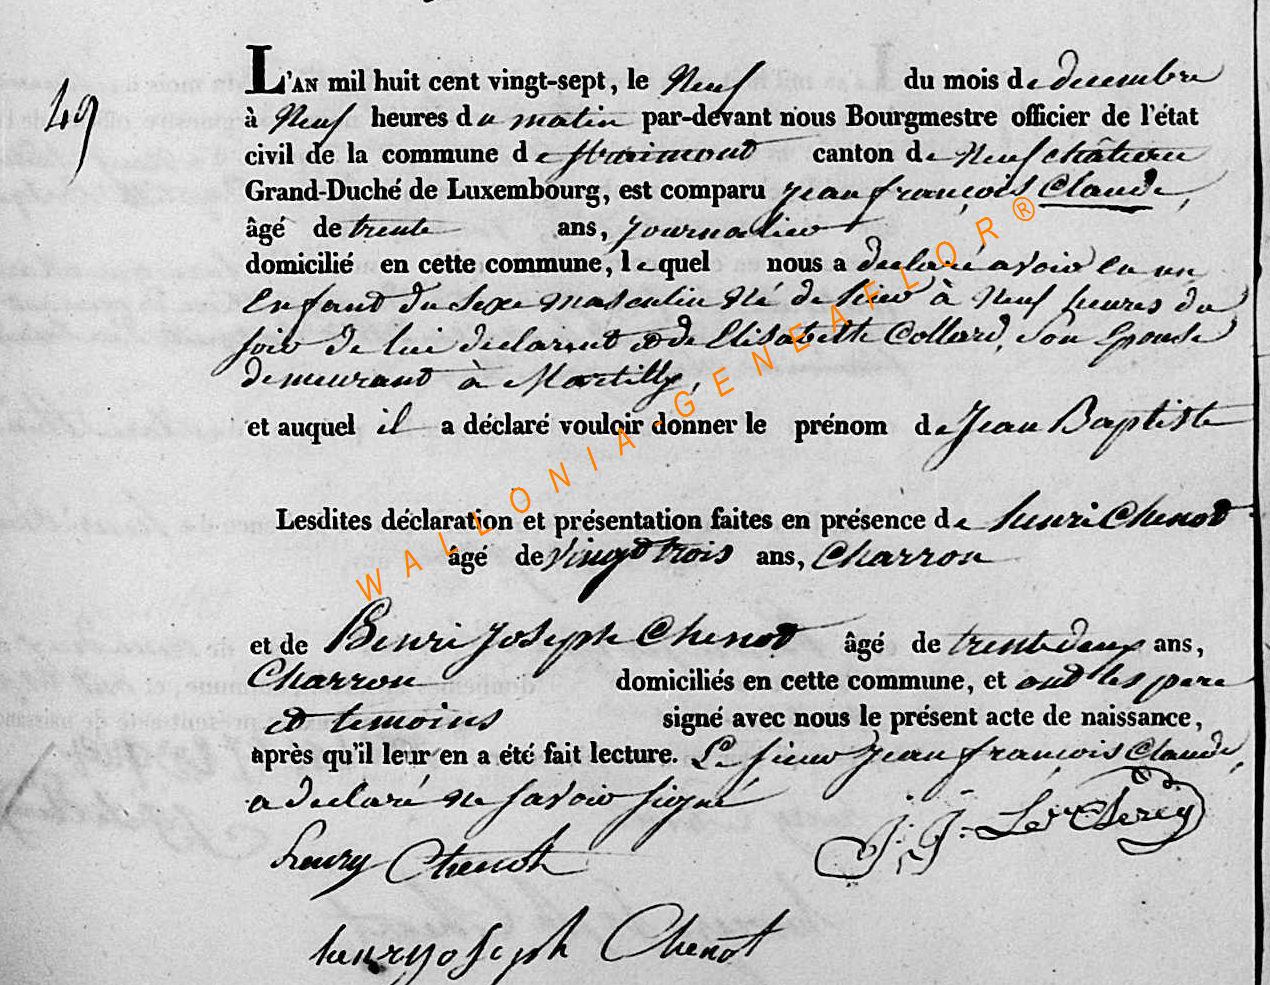 49
L'AN mil huit cent vingt-sept, le Neuf du mois de decembre
à Neuf heures du matin par-devant nous Bourgmestre officier de l'état
civil de la commune de Straimont canton de Neufchâteau
Grand-Duché de Luxembourg, est comparu jean françois Claude,
âgé de trente ans, journalier
domicilié en cette commune, lequel nous a declaré avoir eu un
Enfant du Sexe masculin né de hier à Neuf heures du
soir de lui declarant et de Elisabeth Collard, son Epouse
demeurant à Martilly,
et auquel il a déclaré vouloir donner le prénom de Jean Baptiste
Lesdites déclaration et présentation faites en présence de henri Chenot
âgé de vingt trois ans, Charron
et de Henri Joseph Chenot âgé de trente deux ans,
Charron domiciliés en cette commune, et ont les pere
et temoins signé avec nous le présent acte de naissance,
après qu'il leur en a été fait lecture. Le sieur jean françois Claude,
a declaré ne savoir signé
J: J: Le Clerey
henry Chenot
henry joseph Chenot
WALLONIA-GENEAFLOR®